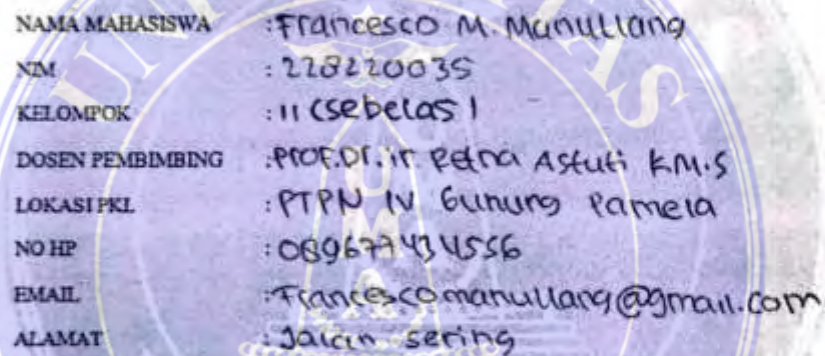 NAMA MAHASISWA : Francesco M. Manullang
NIM : 228220035
KELOMPOK : 11 (sebelas)
DOSEN PEMBIMBING : Prof.Dr.ir Retna Astuti K M.S
LOKASI PKL : PTPN IV Gunung Pamela
NO HP :
EMAIL : Francescomanullang@gmail.com
ALAMAT : Jalan sering
UMA